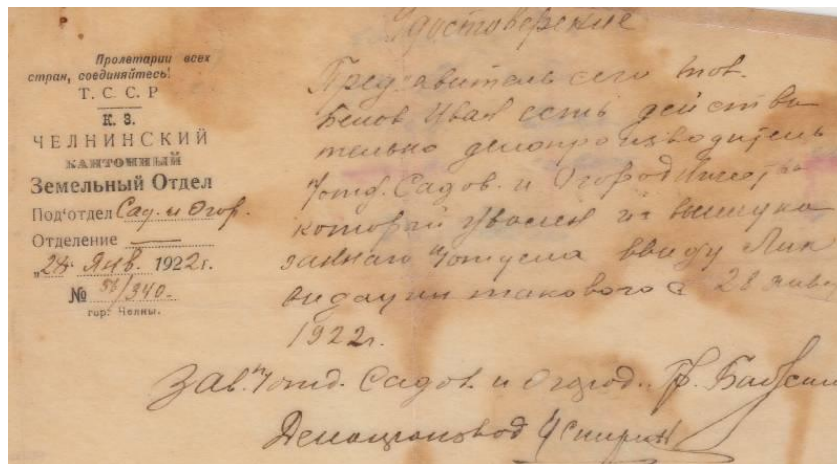 Удостоверение
Пролетарии всех
стран, соединяйтесь!
Т. С. С. Р
К. З.
ЧЕЛНИНСКИЙ
КАНТОННЫЙ
Земельный Отдел
Под'отдел Сад. и Огор.
Отделение —
„28" Янв. 1922г.
№ /340-
гор. Челны.
Пред'явитель сего тов.
Белов Иван есть действи
тельно делопроизводитель
П/отд. Садов. и Огородничества
который уволен из вышеука
заннаго П/отдела ввиду Лик
видации такового с 28 янв
1922г.
Зав. П/отд. Садов. и Огород.
Делопроизвод